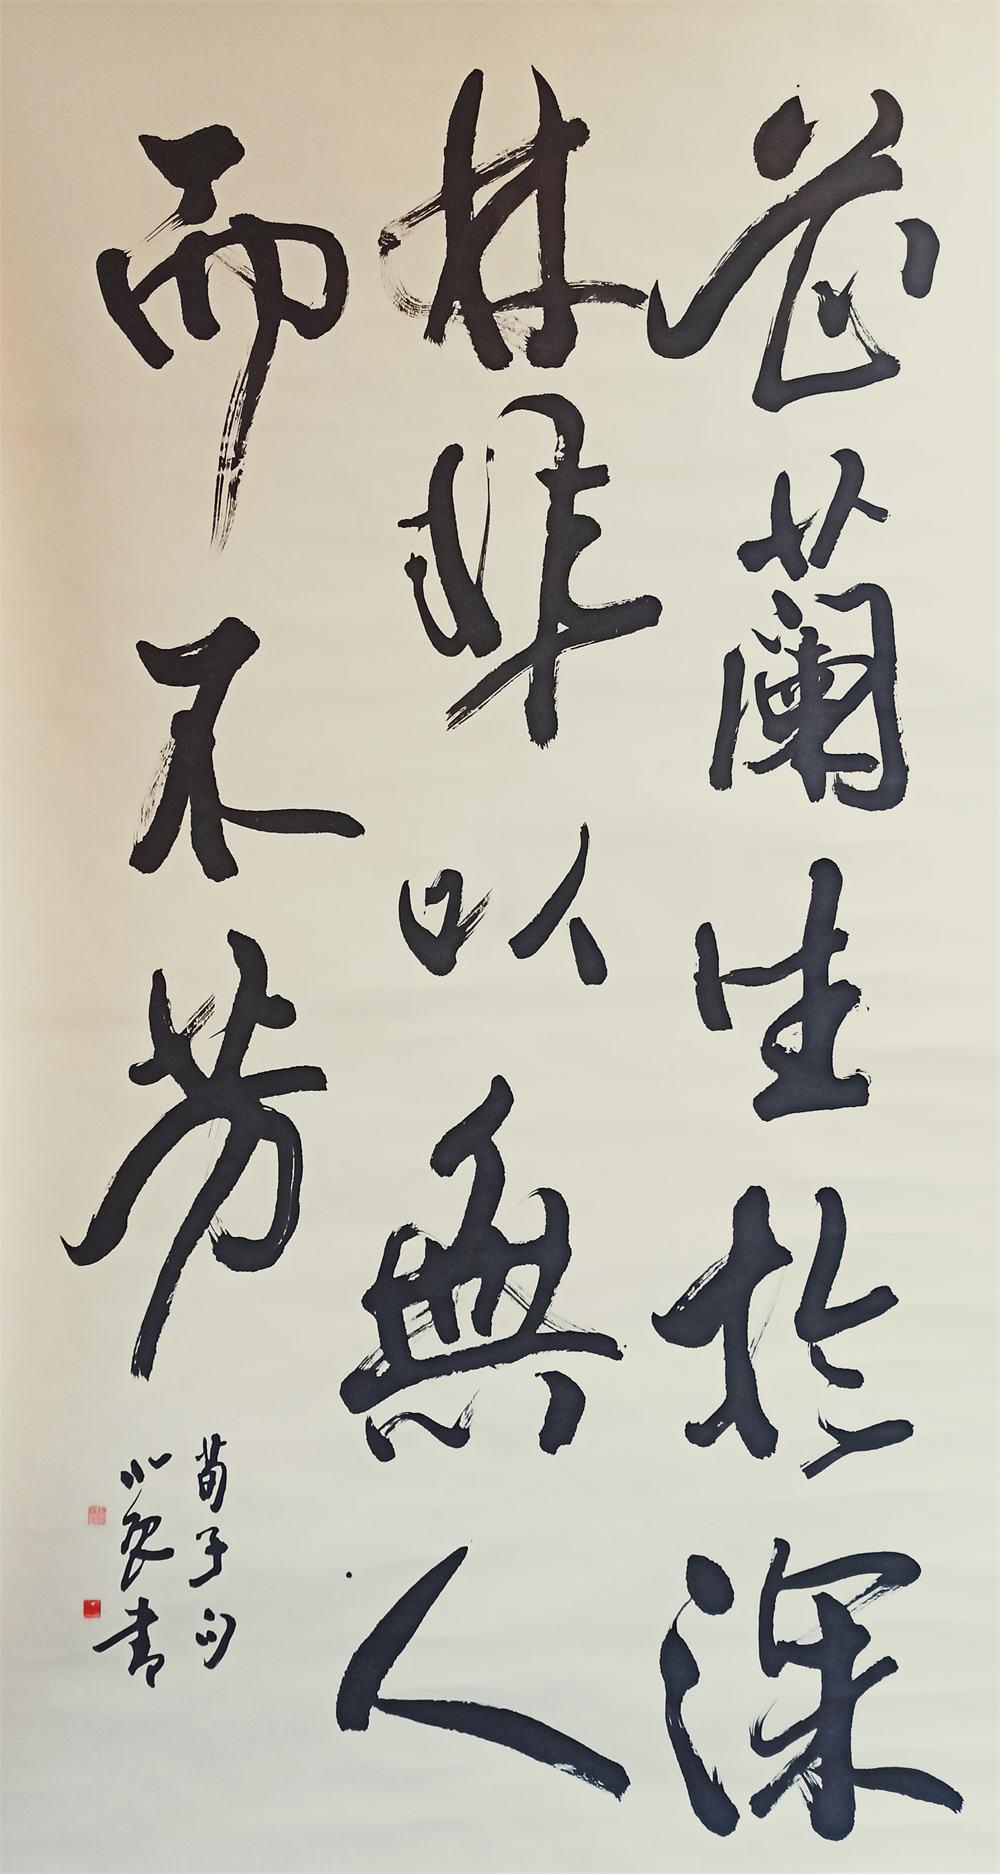 芷蘭生於深
林非以無人
而不芳
荀子句
小 書